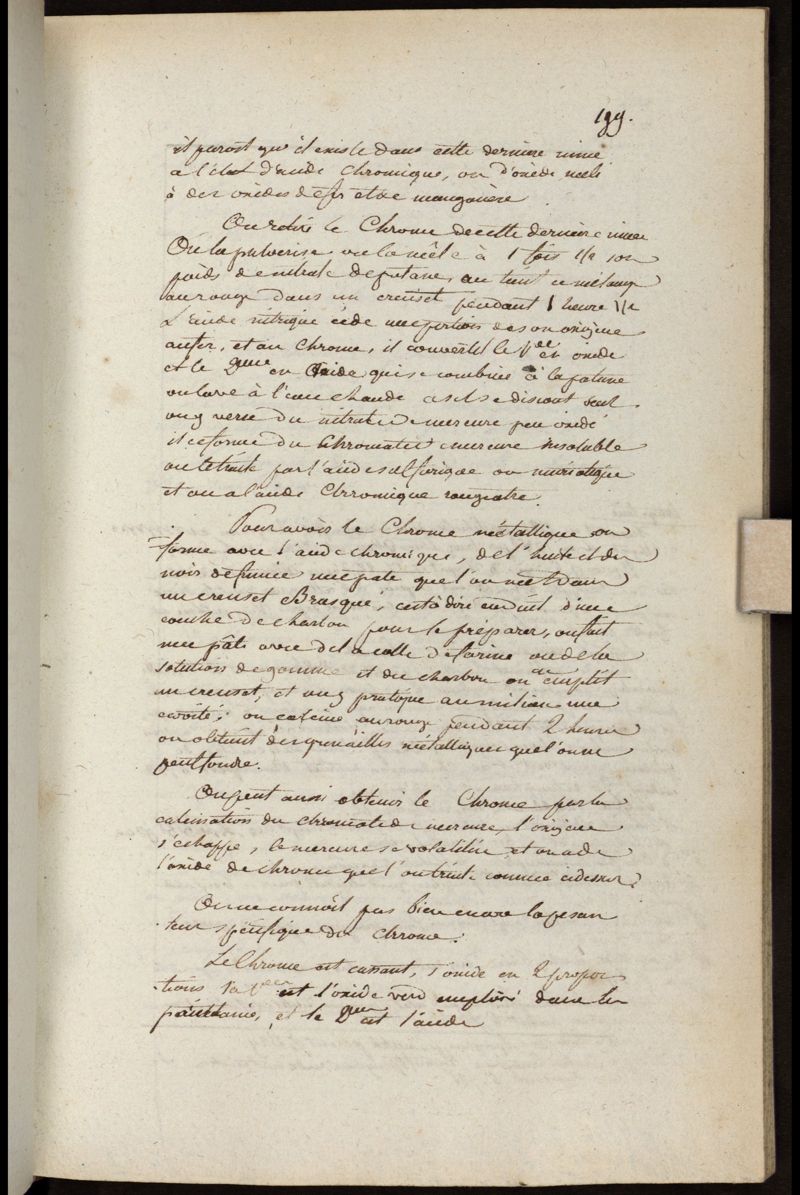 199.
il paroît qu'il existe dans cette derniere mine
à l'état d'acide chromique, ou d'oxide mêlé
à des oxides de fer et de manganèse
On retire le Chrome de cette derniere mine
On la pulverise, on la mêle à 1 fois 1/2 son
poids de nitrate de potasse, on tient ce mélange
au rouge dans un creuset pendant 1 heure 1/2
L'acide nitrique cède une portion de son oxigene
au fer, et au Chrome, il convertit le 1er en oxide
et le 2eme en acide qui se combine à la potasse
on lave à l'eau chaude ce sel se dissout seul
on y verse du nitrate de mercure peu oxidé
il se forme du Chromate de mercure insoluble
on le traite par l'acide sulfurique ou muriatique
et on a l'acide Chromique rougeatre.
Pour avoir le Chrome métallique on
forme avec l'acide chromique, de l'huile et du
noir de fumée une pate que l'on met dans
un creuset Brasqué, c'est à dire enduit d'une
couche de charbon pour le préparer, on fait
une pâte avec de la colle de farine ou de la
solution de gomme et du charbon on en emplit
un creuset, et on y pratique au milieu une
cavité; on calcine au rouge pendant 2 heures
on obtient des grenailles métalliques que l'on ne
peut fondre.
On peut aussi obtenir le Chrome par la
calcination du chromate de mercure, l'oxigene
s'echappe, le mercure se volatilise et on a de
l'oxide de chrome que l'on traite comme cidessus.
On ne connoît pas bien encore la pesan
teur spécifique du chrome.
Le Chrome est cassant, s'oxide en 2 propor
tions la 1ere est l'oxide verd employé dans la
porcelaine, et la 2eme est l'acide